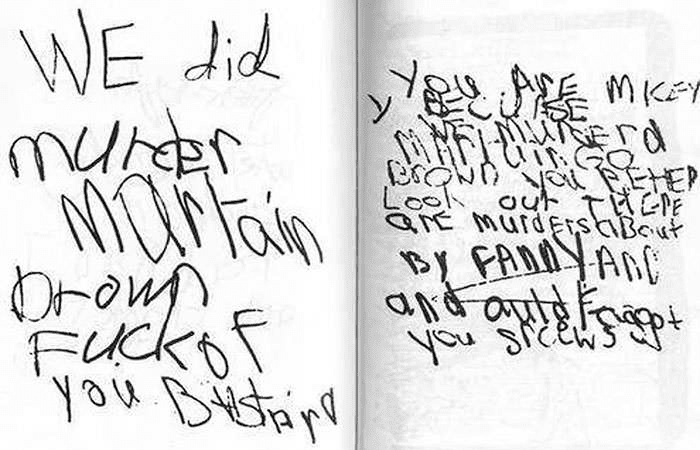 WE did
murder
martain
brown
Fuckof
you BAstArd
you ArE mICEy
y BECUrSE
WE murdErd
MArtain GO
Brown you BEtER
Look out THErE
arE murdErs aBout
By FANNY ANd
and auld Faggot
you srcews